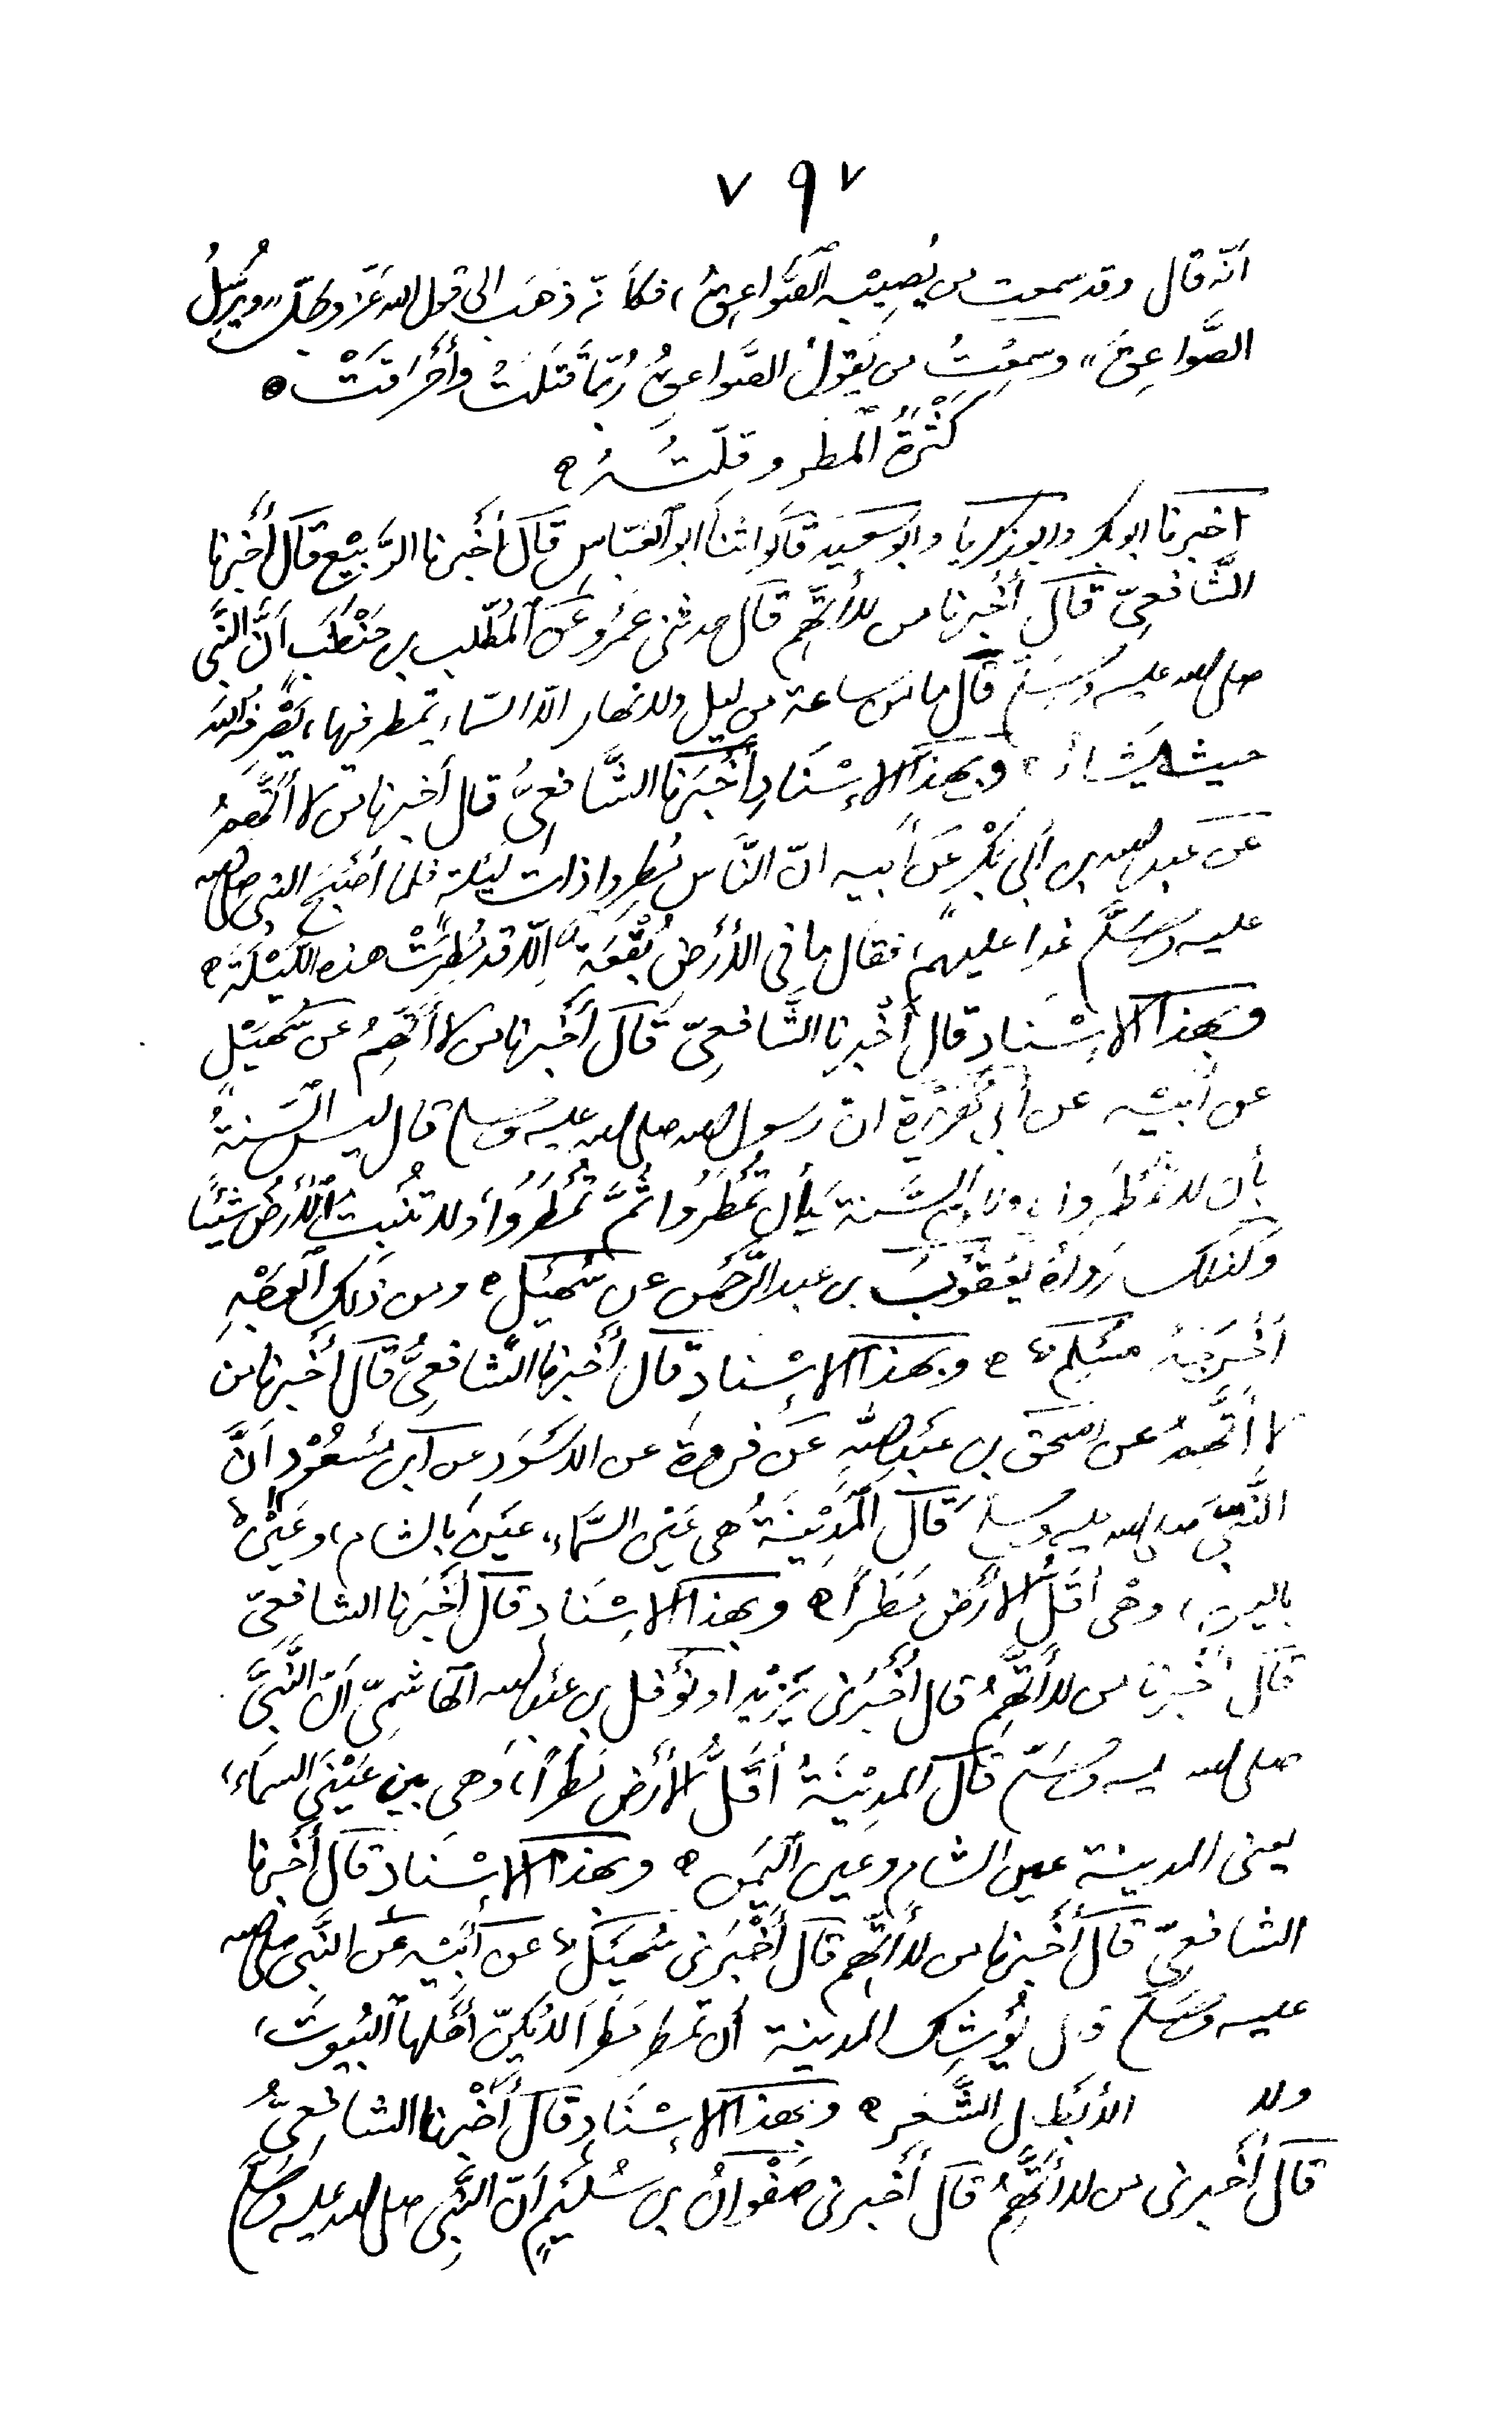 ٧٩٧
أنّه قال وقد سمعت من يُصِيبه الصَّواعِقُ، فكأنّه ذهَب إلى قول الله عَزّ وجلّ "ويُرسِلُ
الصَّواعِقَ" وسمعْتُ من يقولُ الصَّواعِقُ رُبّمَا قَتَلَتْ وأَحْرَقَتْ ه
كَثْرَةُ المطر وقِلَّتُهُ ه
أخبرنا أبو بكر وأبو زكريا وأبو سعيد قالوا ثنا أبو العبّاس قال أَخبرنا الرَّبيْع قال أَخبرنا
الشَّافعيّ قال أَخبرنا من لا أتّهم قال حدثني عَمرو عن المُطَّلب بن حَنْطَب أنَّ النَّبي
صلى الله عليه وسلم قال ما من ساعة من ليل ولا نهار الّا السّماء تمطر فيها، يَصْرِفُه الله
حيث يَشَاءُ ه وبهذا الإسْنَادِ أَخْبَرنا الشَّافعيُّ قال أخبرنا من لا أتَّهمُ
عن عبد الله بن أبي بَكْر عن أبيه انّ النَّاس مُطِروا ذات ليْلة فلما أصْبَح النبي صلى الله
عليه وسلَّم غدا عليهم، فقال ما في الأرْضِ بُقْعَة إلّا قد مُطِرَتْ هذه اللّيْلَة ه
وبهذا الإسْنَاد قال أَخْبرنا الشَّافعيّ قال أَخْبرنا من لا أتَّهِمُ عن سُهَيْل
عن أبيْه عن أبي هُرَيْرَة انّ رسول الله صلى الله عليه وسلم قال ليس السَّنةُ
بأن لا تُمْطَروا، ولكن السَّنة بأن تُمْطَرُوا ثُمَّ تُمْطَرُوا ولا تُنْبِت الأَرْضُ شيْئًا
وكذلك رَواهُ يَعْقُوبُ بن عبد الرَّحمن عن سُهَيْل ه ومن ذَلك الوَجْهِ
أَخْرَجَهُ مسْلِم ه وبهذا الإسْناد قال أُخْبرنا الشَّافعيُّ قال أخْبرنا من
لا أتَّهِمُ عن اسحق بن عَبْدِ اللهِ عن عن الاسْوَد عن ابن مَسْعُوْد أنَّ
النَّبيّ صلى الله عليه وسلم قال المَدِيْنَةُ هي عَيْني السَّماءِ، عَيْن بالشام، وعَيْن
باليمن، وهْي أقلُّ الأرْض مَطَرًا ه وبهذا الإسْنَاد قال أخْبَرنا الشافعيّ
قال أخْبرنا من لا أتَّهِمُ قال أخْبَرني يَزِيْد أو نَوْفل بن عبْد الله الهاشميّ أنّ النَّبيَّ
صلى الله عليه وسلّم قال المدِيْنَةُ أقلُّ الأرْض مَطَرًا، وهي بين عَيْنَي السماء،
يعني المدينة عين الشام وعين اليمن ه وبهذا الإسْناد قال أَخْبرنا
الشافعيّ قال أَخْبرنا من لا أتَّهِم قال أَخْبَرني سُهَيْل عن أبيْه عن النَّبي صلى الله
عليه وسلَّم قال يُوْشِك المدينة أن تمطر مَطَرًا لا يُكِنّ أهْلها البُيوت،
ولا الأَبْطل الشَّعر ه وبهذا الإسْنَاد قال أَخْبرنا الشافعيُّ
قال أَخبرني من لا أتَّهِمُ قال أخبرني صَفْوانُ بن سُلَيْم أنّ النَّبيَّ صلى الله عليه وسلَّم